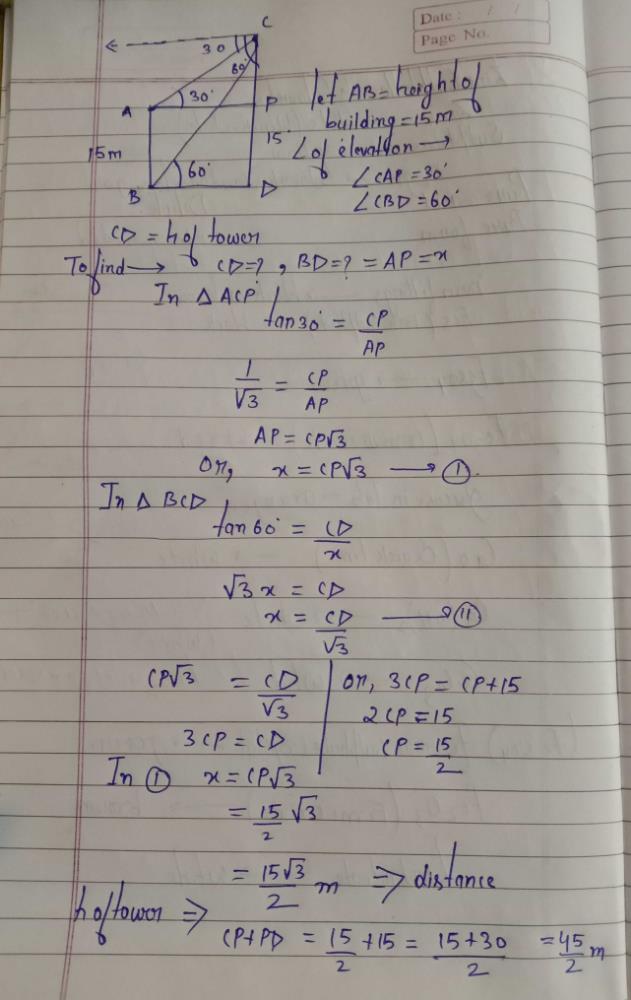 Date : / /
Page No.
C
30
60°
A
30°
P
15m
15
60°
B
D
let AB = height of
building = 15 m
∠ of elevation →
∠CAP = 30°
∠CBD = 60°
CD = h of tower
To find → CD = ? , BD = ? = AP = x
In △ ACP
tan 30° = CP/AP
1/√3 = CP/AP
AP = CP√3
Or, x = CP√3 → I.
In △ BCD
tan 60° = CD/x
√3 x = CD
x = CD/√3 → II
CP√3 = CD/√3
3CP = CD
Or, 3CP = CP + 15
2CP = 15
CP = 15/2
In I x = CP√3
= 15/2 √3
= 15√3/2 m ⇒ distance
h of tower ⇒
CP + PD = 15/2 + 15 = 15+30/2 = 45/2 m